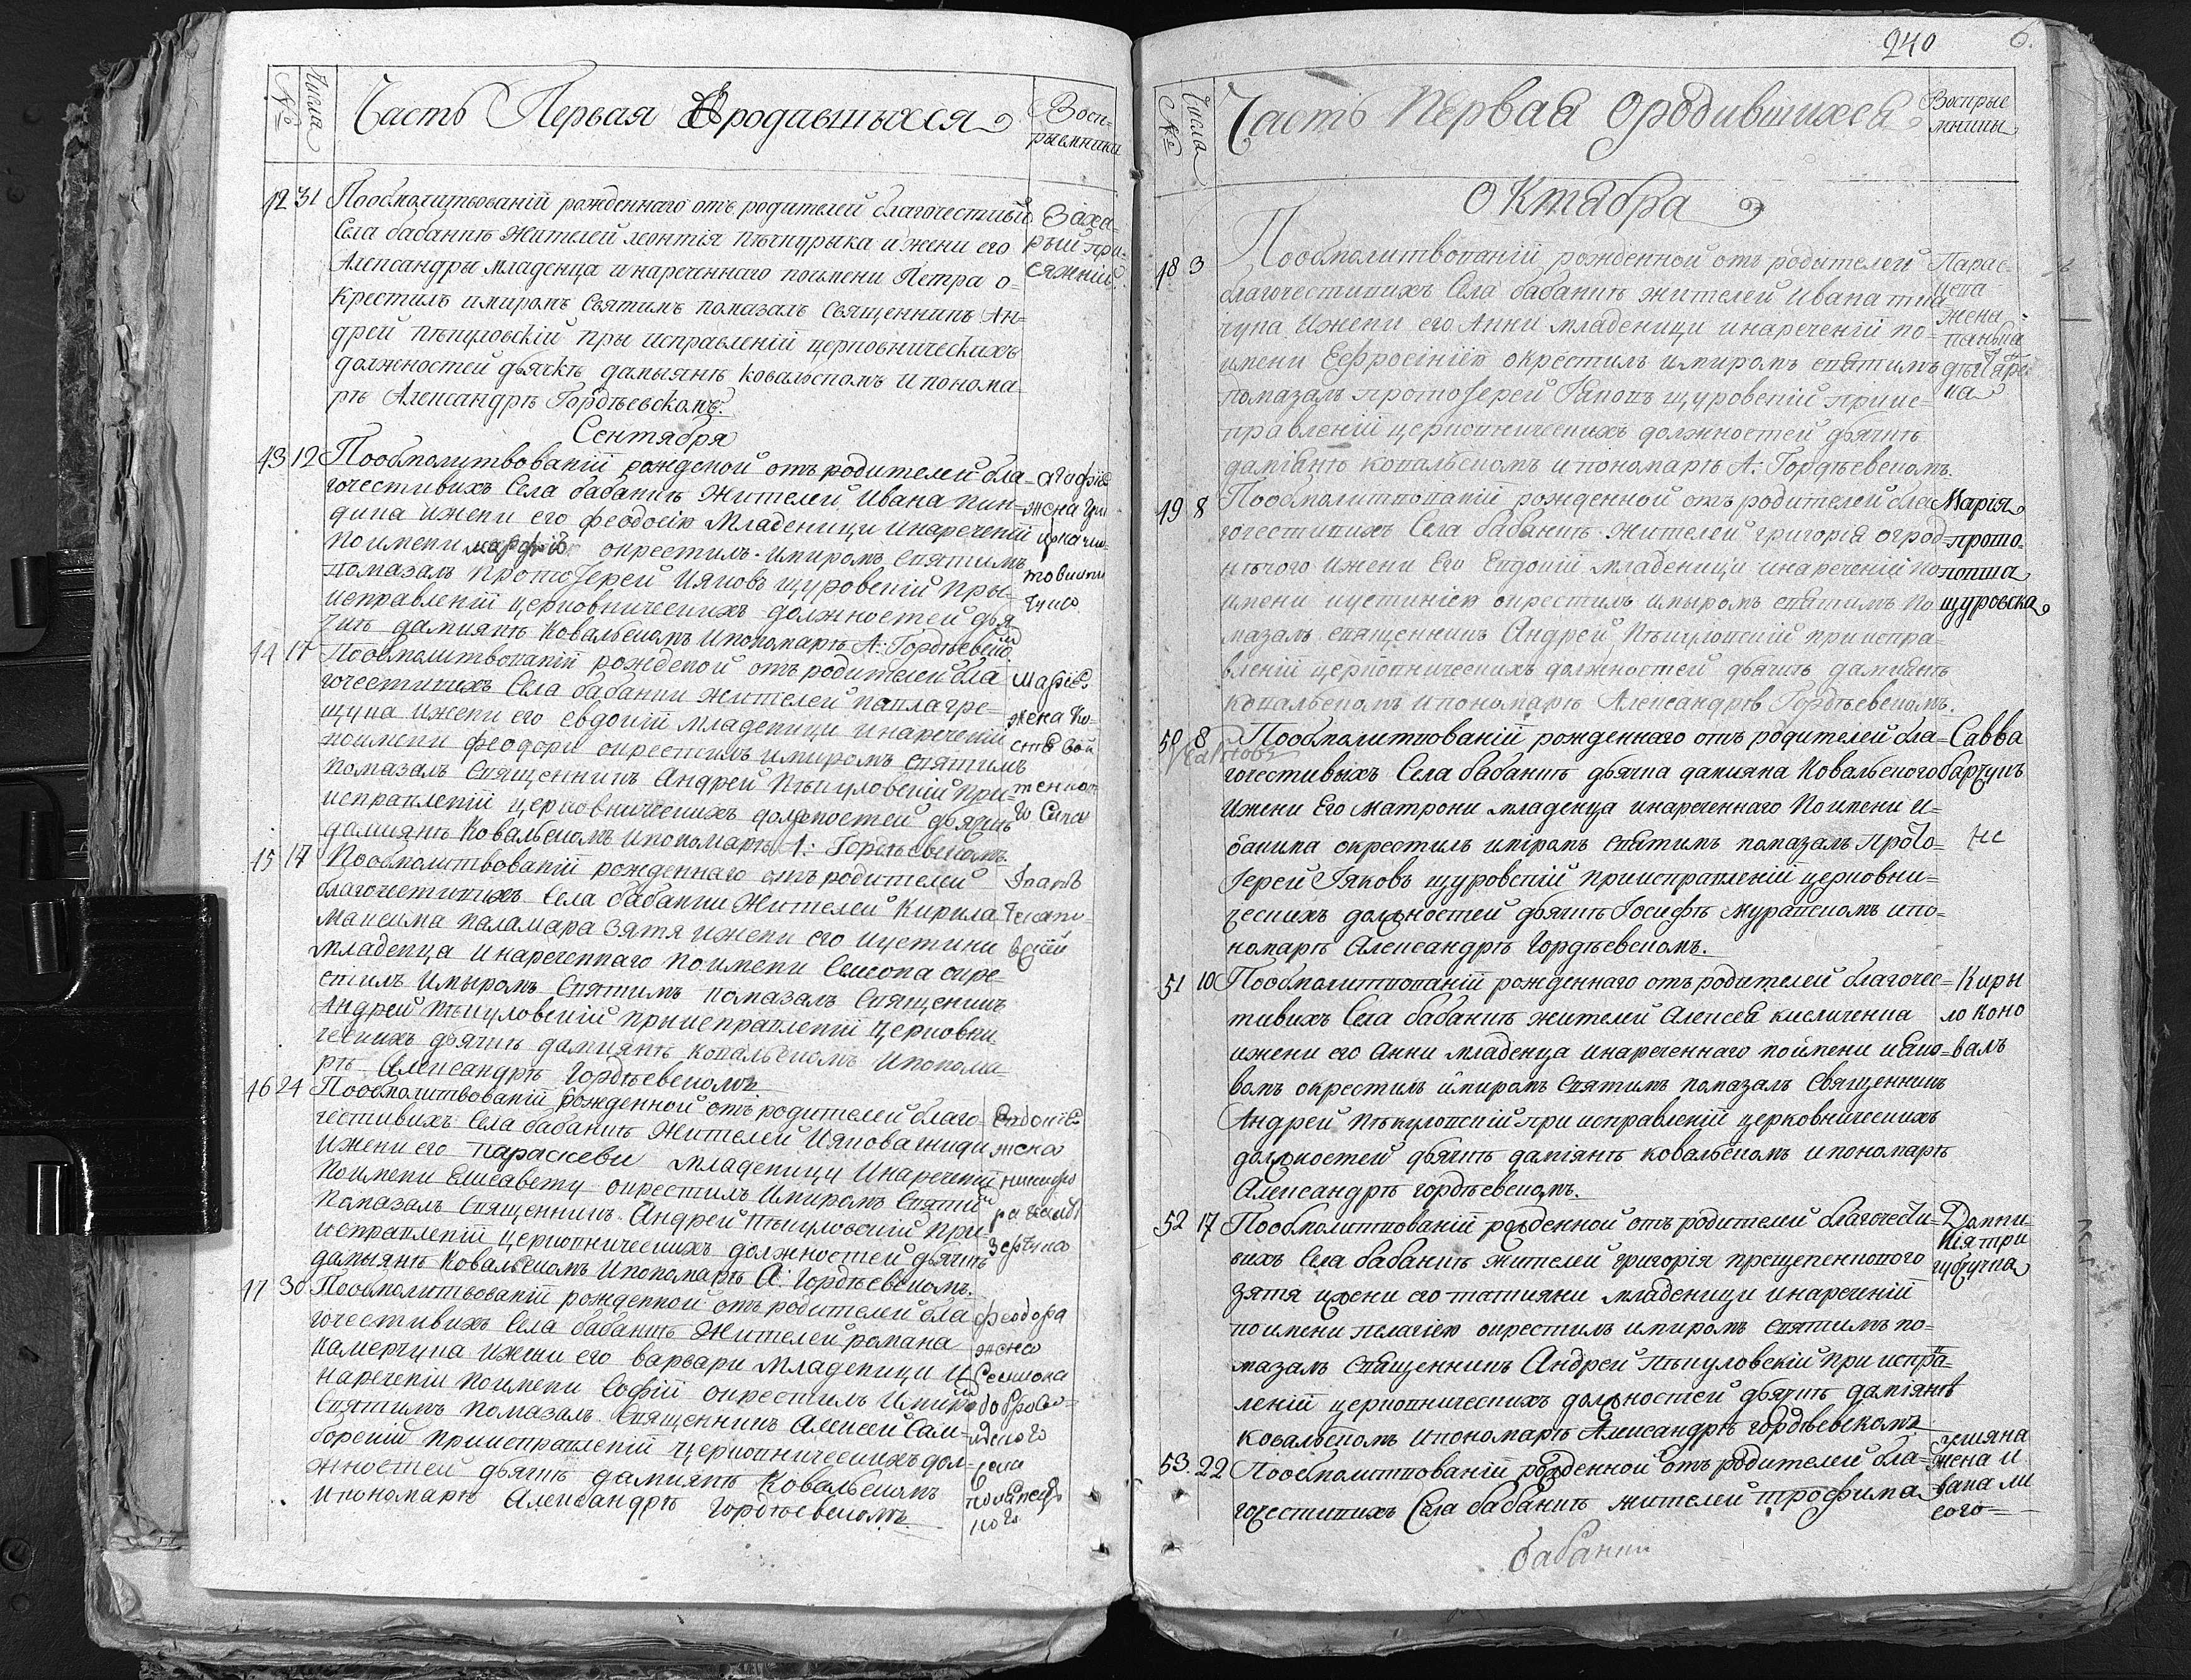 Числа
№
Часть Первая О родившыхся
Воспрыемники
42 31 Пообмолитвованій рожденнаго отъ родителей благочестивы
Села бабанкѣ Жителей леонтія
и жени его
Александры младенца и нареченнаго поимени Петра о=
крестилъ имиромъ Святимъ помазалъ Священникъ Ан=
дрей пѣкуловскій при исправленій церковническихъ
должностей дьячкѣ дамыянѣ ковальскомъ и понома
рѣ Александрѣ Гордѣевскомъ.
Заха=
рый при=
сяжній
Сентября
43 12 Пообмолитвованій рожденой отъ родителей бла=
гочестивихъ Села бабанкѣ Жителей Ивана
ижени его феодосію Младеници инареченій
поимени марфію окрестилъ имиромъ святимъ
помазалъ протоIерей Іяковъ щуровскій при
исправленій церковническихъ должностей дья
чкѣ дамиянѣ Ковальскомъ ипономарѣ А: Гордѣевско
агафія
жена
44 17 Пообмолитвованій рожденой отъ родителей бла
гочестивихъ Села бабанки жителей павла гре=
щука ижени его евдокій младеници инареченій
поимени феодори окрестилъ имиромъ святимъ
помазалъ Священникъ Андрей Пѣкуловскій при=
исправленій церковническихъ должностей дьячкѣ
дамиянѣ Ковальскомъ ипономарѣ А: Гордѣевскомъ.
марія
жена Ко=
45 17 Пообмолитвованій рожденнаго отъ родителей
благочестивихъ Села бабанки Жителей Кирила
максима паламара зятя ижени его иустини
младенца инареченнаго поимени Симеона окре=
стилъ имыромъ Святимъ помазалъ Священикъ
Андрей Пѣкуловскій приисправленій церковни
ческихъ дьячкѣ дамиянѣ ковальскомъ ипонома=
рѣ Александрѣ Гордѣевскомъ
Іванъ
46 24 Пообмолитвованій рожденной отъ родителей благо
честивихъ Села бабанкѣ Жителей Иякова
ижени его параскеви младеници инареченій
поимени Елисавету окрестилъ имиромъ Святим
помазалъ Священникъ Андрей Пѣкуловскій при=
исправленій церковническихъ должностей дьячкѣ
дамыянѣ Ковальскомъ ипономарѣ А: Гордѣевскомъ.
Евдокія
жена
никифо
ра
47 30 Пообмолитвованій рожденной отъ родителей бла
гочестивихъ Села бабанкѣ Жителей романа
камерчука ижени его варвари младеници и
наречении поимени Софій окрестилъ имиром
Святимъ помазалъ Священникъ Алексей Сам=
борскій приисправленій церковническихъ дол=
жностей дьячкѣ дамиянѣ Ковальскомъ
ипономарѣ Александрѣ Гордѣевскомъ
феодора
жена
Семиона
240
6.
Числа
№
Часть Первая О родившихся
Воспрые
мники
Октября
48 3 Пообмолитвованій рожденной отъ родителей
благочестивихъ Села бабанкѣ жителей Ивана тка
чука Ижени его Анни младеници инареченій по=
имени Ефросінію окрестилъ имиромъ святимъ
помазалъ протоІерей Іаковъ щуровскій приис=
правленій церковническихъ должностей дьячкѣ
даміянѣ ковальскомъ ипономарѣ А: Гордѣевскомъ.
Парас=
жена
49 8 Пообмолитвованій рожденной отъ родителей бла
гочестивихъ Села бабанкѣ жителей григорія огрод=
нѣчого ижени Его Евдокій младеници инареченій по
имени иустинію окрестилъ имыромъ святимъ по
мазалъ священникъ Андрей Пѣкуловскій прииспра=
вленій церковническихъ должностей дьячкѣ дамиянѣ
ковальскомъ ипономарѣ Александрѣ Гордѣевскомъ.
Марія
прото=
попша
щуровска
50 8 Пообмолитвованій рожденнаго отъ родителей бла=
гочестивыхъ Села бабанкѣ дьячка дамияна Ковальского
ижени Его матрони младенца инареченнаго поимени и=
оаникия окрестилъ имиромъ святимъ помазалъ прото=
Іерей Іяковъ щуровскій приисправленій церковни=
ческихъ должностей дьячкѣ Іосифѣ журавскомъ ипо=
номарѣ Александрѣ Гордѣевскомъ.
Савва
барчукъ
51 10 Пообмолитвованій рожденнаго отъ родителей благочес=
тивихъ Села бабанкѣ жителей Алексея кисличенка
ижени его анни младенца инареченнаго поимени иЯко=
вомъ окрестилъ имиромъ святимъ помазалъ Священникъ
Андрей Пѣкуловскій при исправленій церковническихъ
должностей дьячкѣ даміянѣ ковальскомъ ипономарѣ
Александрѣ гордѣевскомъ.
Киры
ло коно
валъ
52 17 Пообмолитвованій рожденной отъ родителей благочести=
вихъ Села бабанкѣ жителей григорія прещепенкового
зятя ижени его татияни младеници инареченій
поимени пелагію окрестилъ имиромъ святимъ по=
мазалъ священникъ Андрей Пѣкуловскій при испра=
леній церковническихъ должностей дьячкѣ даміянѣ
ковальскомъ ипономарѣ Александрѣ гордѣевскомъ
53. 22 Пообмолитвованій рожденной отъ родителей бла=
гочестивихъ Села бабанкѣ жителей трофима
улияна
жена и
вана ли
сого=
бабанки